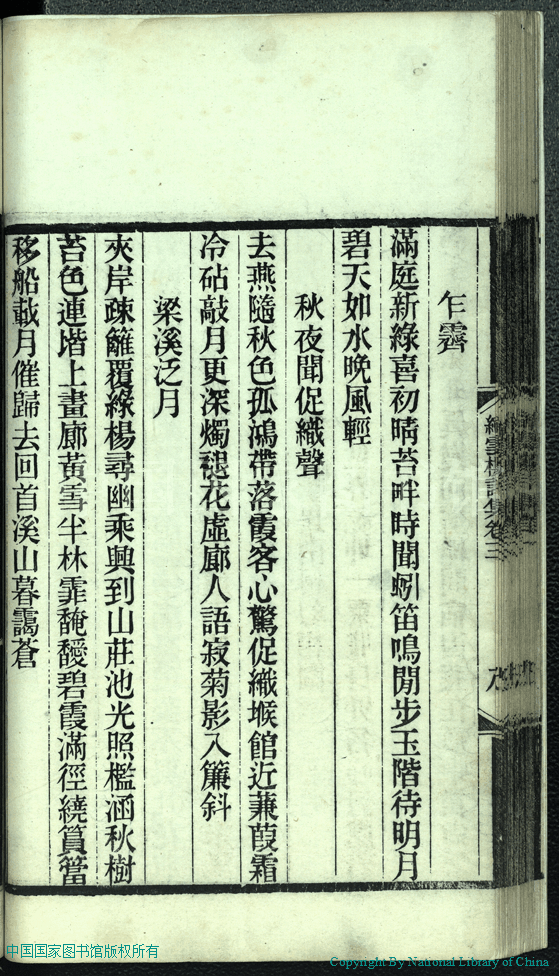 乍霽
滿庭新綠喜初晴苔畔時聞蚓笛鳴閒步玉階待明月
碧天如水晚風輕
秋夜聞促織聲
去燕隨秋色孤鴻帶落霞客心驚促織堠館近蒹葭霜
冷砧敲月更深燭褪花虛廊人語寂菊影入簾斜
梁溪泛月
夾岸疎籬覆綠楊尋幽乘興到山莊池光照檻涵秋樹
苔色連堦上畫廊黃雪半林霏馣馤碧霞滿徑繞篔簹
移船載月催歸去回首溪山暮靄蒼
雲樓詩集卷三
中国国家图书馆版权所有
Copyright By National Library of China